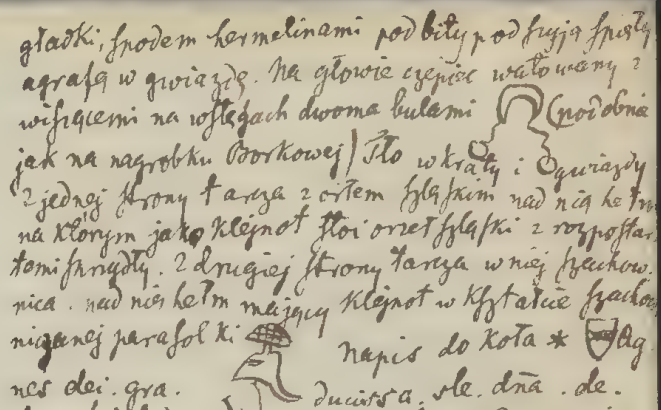 gładki, spodem hermelinami podbiły pod szyją spięty
agrafą w gwiazdę. Na głowie czepiec wałowany z
wiszącemi na wstęgach dwoma bulami (podobnie
jak na nagrobku Borkowej) Tło w kraty i gwiazdy
z jednej strony tarcza z orłem szląskim nad nią hełm
na którym jako klejnot stoi orzeł szląski z rozpostar
tomi skrzydły. z drugiej strony tarcza w niej szachow.
nica. nad nią hełm mający klejnot w kształcie szachow
niczanej parasolki napis do koła * Ag.
nes dei. gra. ducissa. sle. dña. de.